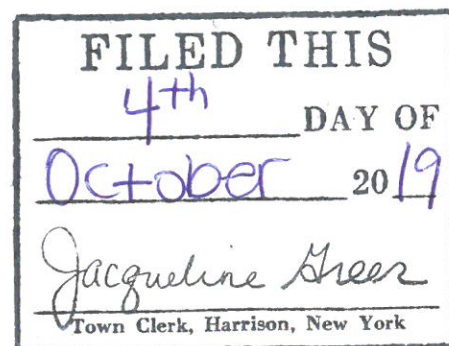 FILED THIS
4th DAY OF
October 2019
Jacqueline Greer
Town Clerk, Harrison, New York